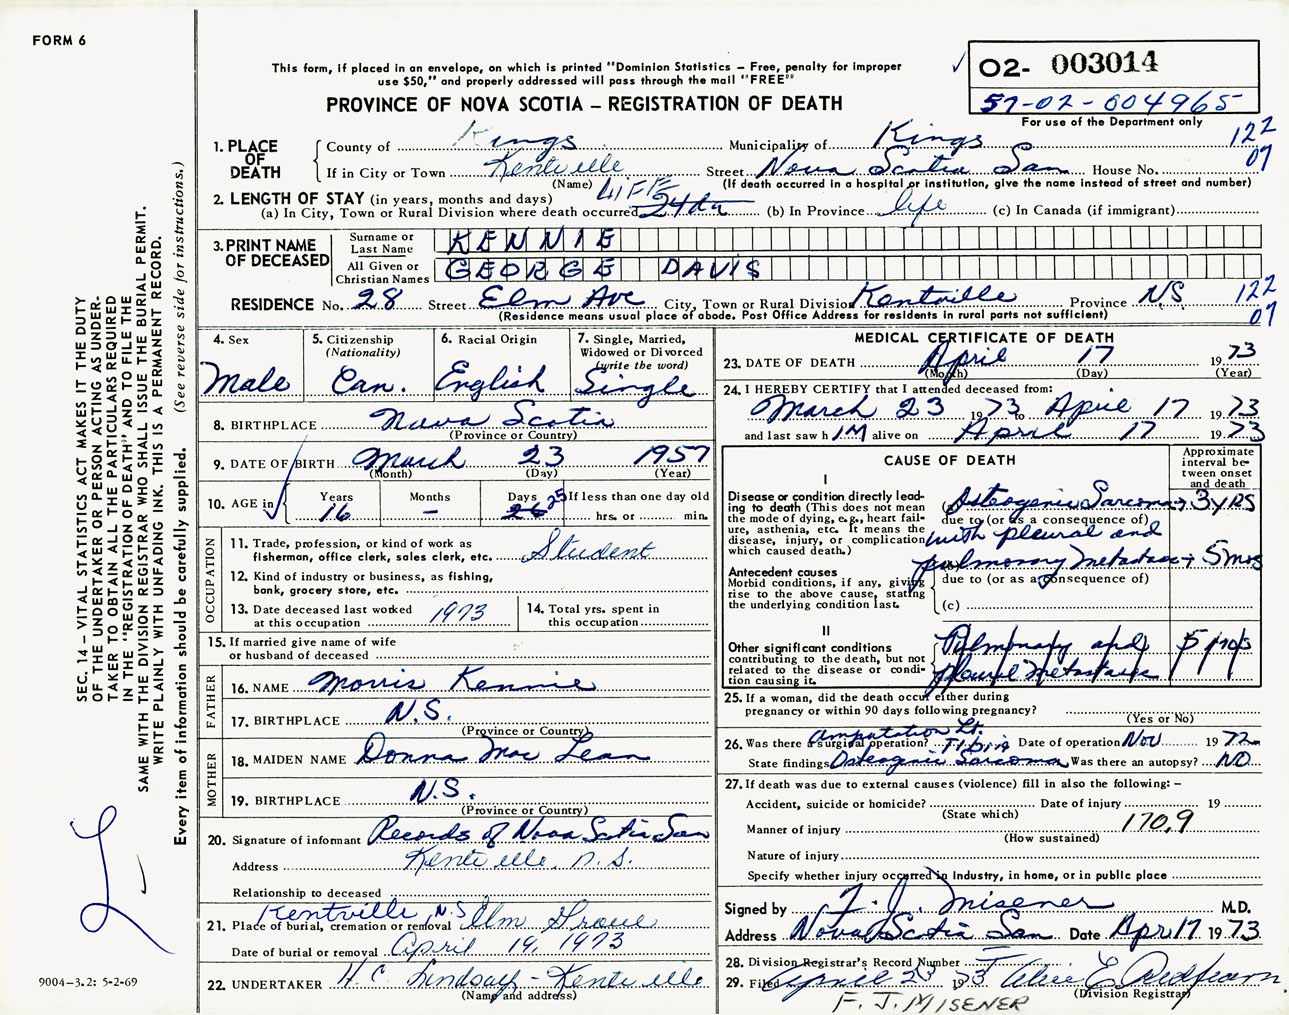 FORM 6
This form, if placed in an envelope, on which is printed "Dominion Statistics – Free, penalty for improper
use $50," and properly addressed will pass through the mail "FREE"
PROVINCE OF NOVA SCOTIA – REGISTRATION OF DEATH
✓ 02- 003014
57-02-004965
For use of the Department only
1. PLACE OF DEATH
County of Kings Municipality of Kings 122
If in City or Town Kentville Street Nova Scotia San House No. 07
(Name) (If death occurred in a hospital or institution, give the name instead of street and number)
2. LENGTH OF STAY (in years, months and days) LIFE
(a) In City, Town or Rural Division where death occurred 24 da (b) In Province life (c) In Canada (if immigrant)
3. PRINT NAME OF DECEASED
Surname or Last Name KENNIE
All Given or Christian Names GEORGE DAVIS
RESIDENCE No. 28 Street Elm Ave City, Town or Rural Division Kentville Province N.S. 122
(Residence means usual place of abode. Post Office Address for residents in rural parts not sufficient) 07
4. Sex
Male
5. Citizenship
(Nationality)
Can.
6. Racial Origin
English
7. Single, Married,
Widowed or Divorced
(write the word)
Single
8. BIRTHPLACE Nova Scotia
(Province or Country)
9. DATE OF BIRTH March 23 1957
(Month) (Day) (Year)
10. AGE in Years Months Days If less than one day old
16 – 26 25 hrs. or min.
OCCUPATION
11. Trade, profession, or kind of work as
fisherman, office clerk, sales clerk, etc. Student
12. Kind of industry or business, as fishing,
bank, grocery store, etc.
13. Date deceased last worked
at this occupation 1973
14. Total yrs. spent in
this occupation
15. If married give name of wife
or husband of deceased
FATHER
16. NAME Morris Kennie
17. BIRTHPLACE N.S.
(Province or Country)
MOTHER
18. MAIDEN NAME Donna Mac Lean
19. BIRTHPLACE N.S.
(Province or Country)
20. Signature of informant Records of Nova Scotia San
Address Kentville, N.S.
Relationship to deceased
Kentville, N.S.
21. Place of burial, cremation or removal Elm Grove
Date of burial or removal April 19, 1973
22. UNDERTAKER H.C. Lindsay - Kentville
(Name and address)
MEDICAL CERTIFICATE OF DEATH
23. DATE OF DEATH April 17 1973
(Month) (Day) (Year)
24. I HEREBY CERTIFY that I attended deceased from:
March 23 1973 to April 17 1973
and last saw h IM alive on April 17 1973
CAUSE OF DEATH
Approximate
interval be-
tween onset
and death
I
Disease or condition directly lead-
ing to death (This does not mean
the mode of dying, e.g., heart fail-
ure, asthenia, etc. It means the
disease, injury, or complication
which caused death.)
(a) Osteogenic Sarcoma → 3 yrs
due to (or as a consequence of)
with pleural and
(b) pulmonary metastases → 5 mos
Antecedent causes
Morbid conditions, if any, giving
rise to the above cause, stating
the underlying condition last.
due to (or as a consequence of)
(c)
II
Other significant conditions
contributing to the death, but not
related to the disease or condi-
tion causing it.
Pulmonary and 5 mos
pleural metastases
25. If a woman, did the death occur either during
pregnancy or within 90 days following pregnancy?
(Yes or No)
Amputation Lt.
26. Was there a surgical operation? Tibia Date of operation Nov 1972
State findings Osteogenic Sarcoma Was there an autopsy? NO
27. If death was due to external causes (violence) fill in also the following: –
Accident, suicide or homicide? Date of injury 19
(State which)
Manner of injury 170.9
(How sustained)
Nature of injury
Specify whether injury occurred in industry, in home, or in public place
Signed by F. J. Misener M.D.
Address Nova Scotia San Date Apr 17 1973
28. Division Registrar's Record Number
29. Filed April 23 1973 Alice E.
(Division Registrar)
F. J. MISENER
SEC. 14 – VITAL STATISTICS ACT MAKES IT THE DUTY
OF THE UNDERTAKER OR PERSON ACTING AS UNDER-
TAKER TO OBTAIN ALL THE PARTICULARS REQUIRED
IN THE "REGISTRATION OF DEATH" AND TO FILE THE
SAME WITH THE DIVISION REGISTRAR WHO SHALL ISSUE THE BURIAL PERMIT.
WRITE PLAINLY WITH UNFADING INK. THIS IS A PERMANENT RECORD.
Every item of information should be carefully supplied. (See reverse side for instructions.)
9004–3.2: 5-2-69